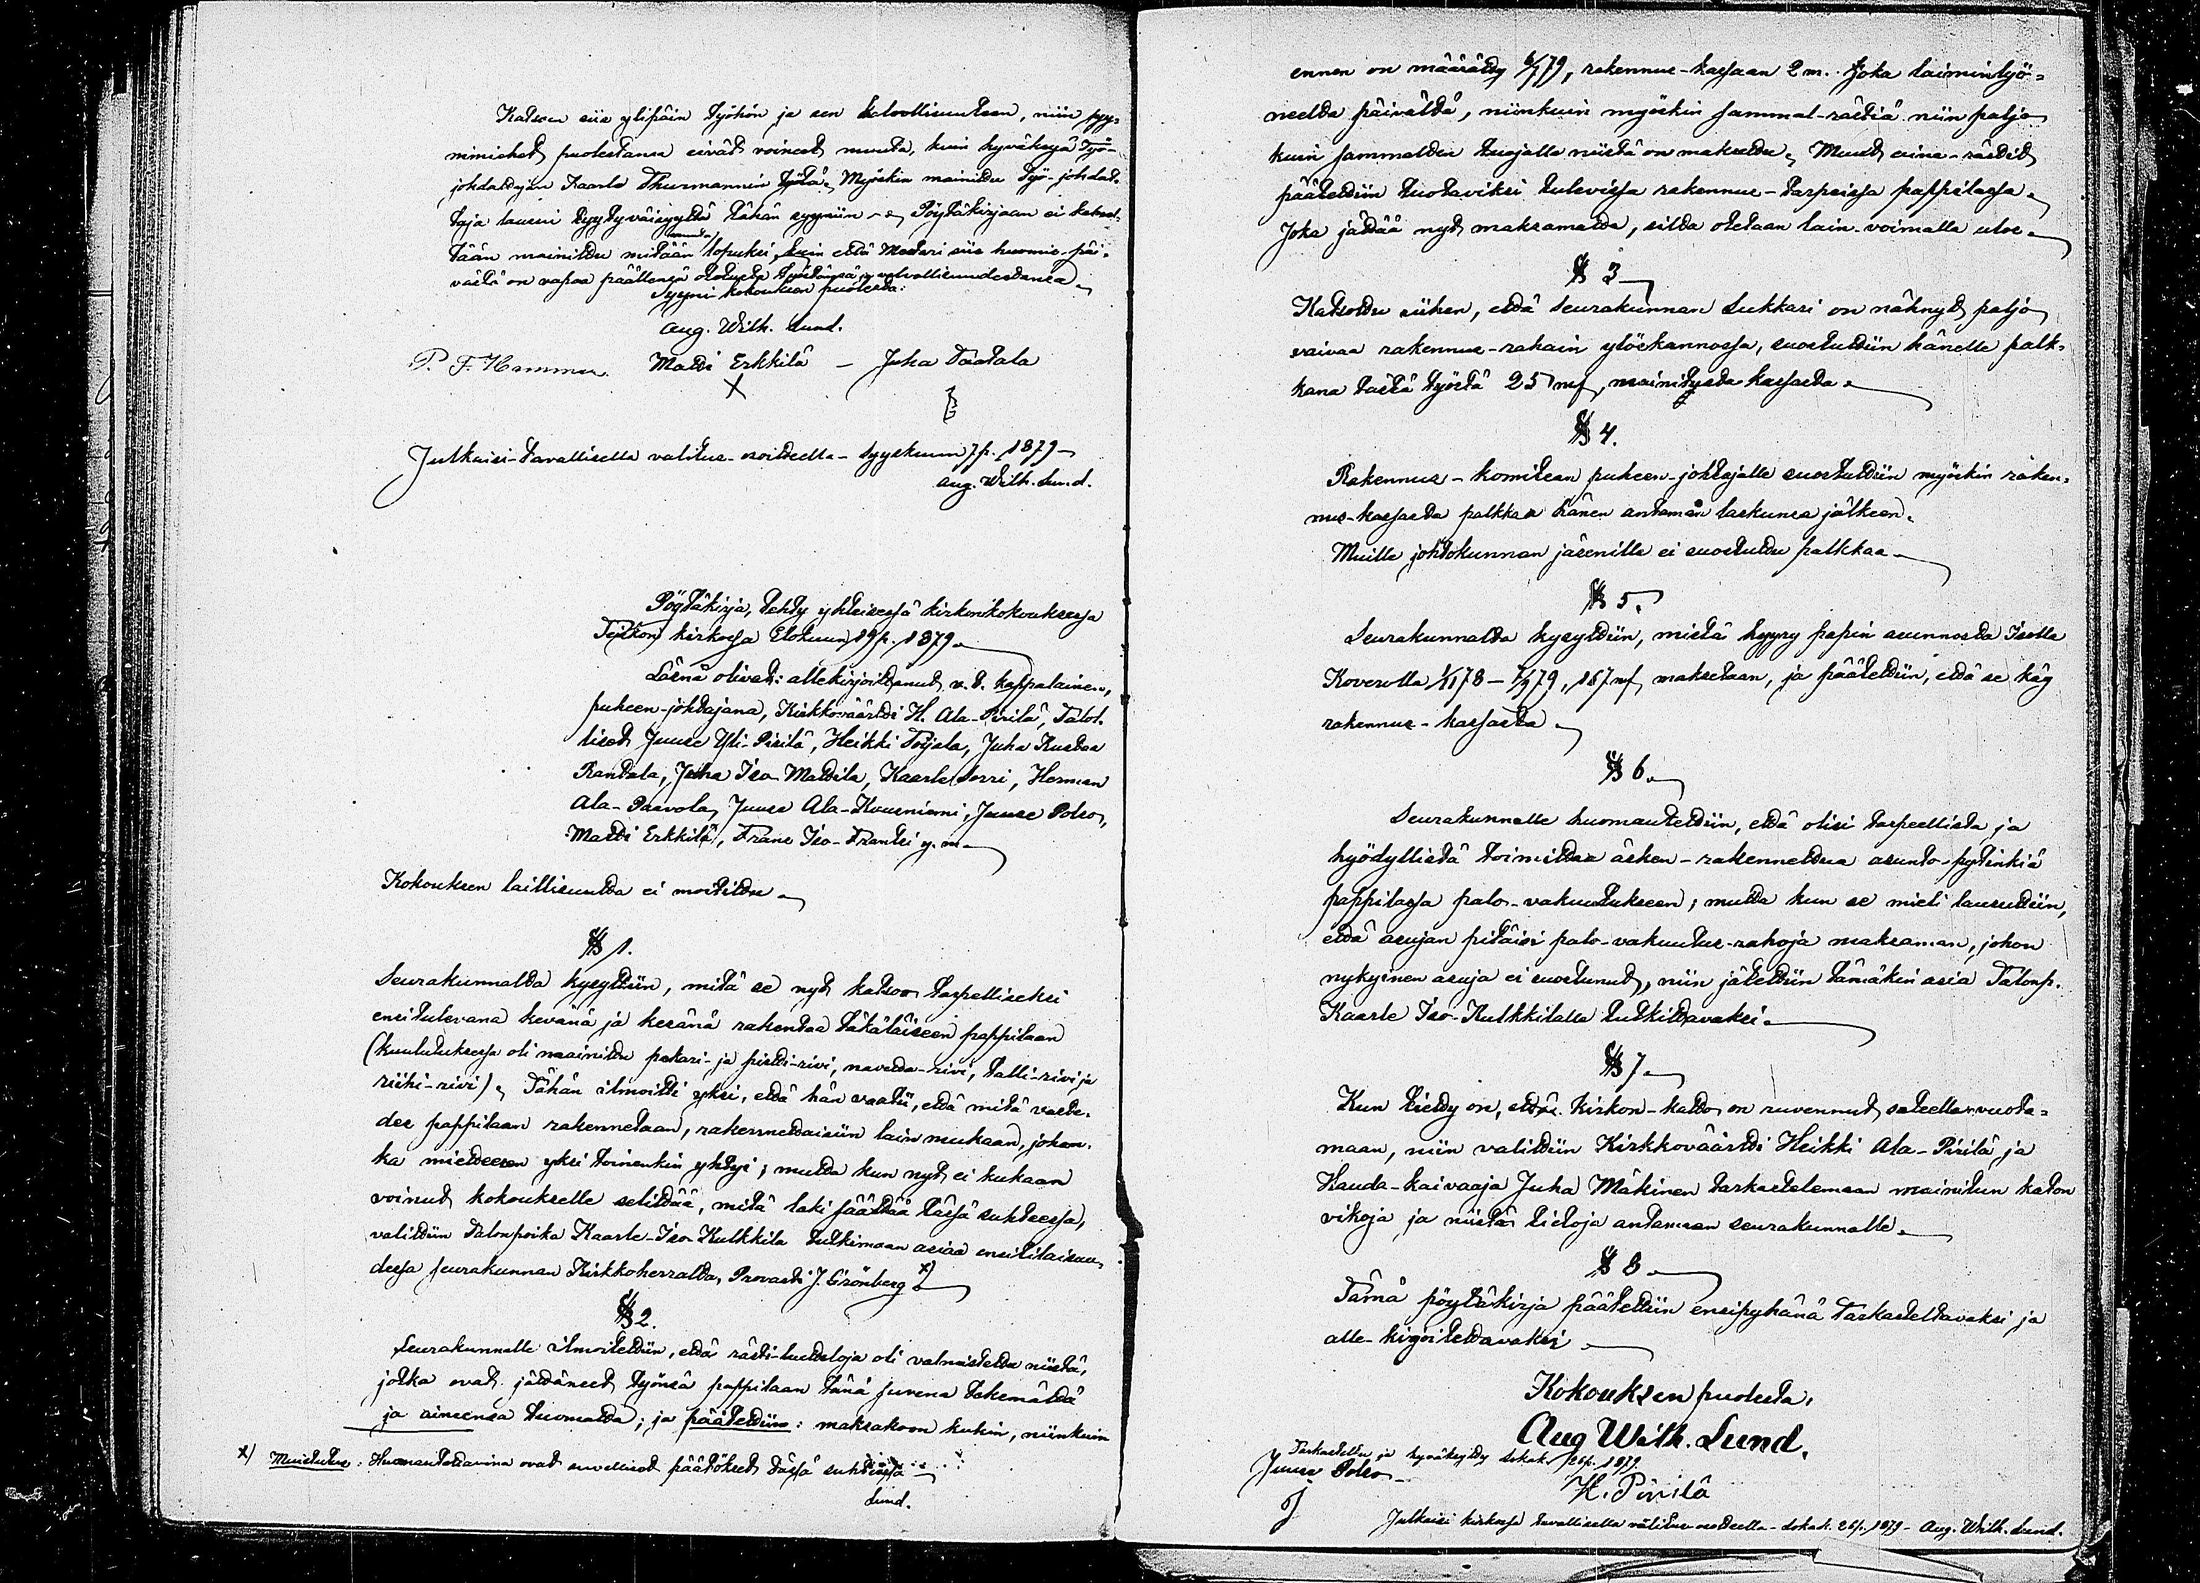 Katsoen siis ylipäin työhön ja sen laatuun, niin syy-
nimiehet puolestansa eivät voineet muuta, kuin hyväksyä Työ-
johdattajan Kaarle Thurmannin työtä. Myöskin mainittu Työ-johdat-
taja lausui tyytyväisyyttä tähän syyniin. Pöytäkirjaan ei katsot-
tään mainittu mitään lopuksi, kuin että Mestari siis huomis-päi-
västä on vapaa päällensä otetusta työstänsä ja velvollisuudestansa.
Syyni kokouksen puolesta:
Aug. Wilh. Lund.
P. F. Hammar. Matti Erkkilä — Juha Taatala
X
Julkaisi tavallisella valitus-osoitteella — Syyskuun 7 p. 1879 —
Aug. Wilh. Lund.
Pöytäkirja, tehty yhteisessä kirkonkokouksessa
Teiskon kirkossa Elokuun 19 p. 1879.
Läsnä olivat: allekirjoittanut v. t. kappalainen,
puheen-johtajana, Kirkkoväärti H. Ala-Pirilä, Talol-
liset Juuse Yli-Pirilä, Heikki Poijala, Juha Kustaa
Rantala, Juha Iso-Mattila, Kaarle Sorri, Herman
Ala-Paavola, Juuse Ala-Kuusniemi, Juuse Polso,
Matti Erkkilä, Frans Iso-Frantsi y. m.
Kokouksen laillisuutta ei moitittu.
§ 1.
Seurakunnalta kysyttiin, mitä se nyt katsoo tarpelliseksi
ensitulevana kevänä ja kesänä rakentaa täkäläiseen pappilaan
(kuulutuksessa oli mainittu pakari- ja pirtti-rivi, navetta-rivi, talli-rivi ja
riihi-rivi). Tähän ilmoitti yksi, että hän vaatii, että mitä vaste-
des pappilaan rakennetaan, rakennettaisiin lain mukaan, johon-
ka mielteesen yksi toinenkin yhtyi; mutta kun nyt ei kukaan
voinut kokoukselle selittää, mitä laki säätää tässä suhteessa,
valittiin Talonpoika Kaarle Iso-Kulkkila tutkimaan asiaa ensitilaisuu-
dessa seurakunnan Kirkkoherralta, Provasti J. Grönberg x)
§ 2.
Seurakunnalle ilmoitettiin, että rästi-luetteloja oli valmistettu niistä,
jotka ovat jättäneet työnsä pappilaan tänä suvena tekemättä
ja aineensa tuomatta; ja päätettiin: maksakoon kukin, niinkuin
x) Muistutus: Huomautettavina ovat suvelliset päätökset tässä suhteessa —
Lund.
ennen on määrätty 6/7 79, rakennus-kassaan 2 m. joka laiminlyö-
neeltä päivältä, niinkuin myöskin sammal-rästiä niin paljo
kuin sammalten tuojalle niistä on maksettu. Muut aine-rästit
päätettiin tuotaviksi tulevissa rakennus-tarpeissa pappilassa.
Joka jättää nyt maksamatta, siltä otetaan lain-voimalla ulos.
§ 3
Katsottu siihen, että seurakunnan Lukkari on nähnyt paljo
vaivaa rakennus-rahain ylöskannossa, suostuttiin hänelle palk-
kana tästä työstä 25 mf, mainitusta kassasta.
§ 4.
Rakennus-komitean puheen-johtajalle suostuttiin myöskin raken-
nus-kassasta palkkaa hänen antaman laskunsa jälkeen.
Muille johtokunnan jäsenille ei suostuttu palkkaa.
§ 5.
Seurakunnalta kysyttiin, mistä hyyry papin asunnosta Isolla
Koverolla 1/11 78 — 1/9 79, 167 mf, maksetaan, ja päätettiin, että se käy
rakennus-kassasta.
§ 6
Seurakunnalle huomautettiin, että olisi tarpeellista ja
hyödyllistä toimittaa äsken-rakennettua asunto-pytinkiä
pappilassa palo-vakuutukseen; mutta kun se mieli lausuttiin,
että asujan pitäisi palo-vakuutus-rahoja maksaman, johon
nykyinen asuja ei suostunut, niin jätettiin tämäkin asia Talonp.
Kaarle Iso-Kulkkilalle tutkittavaksi.
§ 7
Kun tietty on, että Kirkon-katto on ruvennut sateella vuota-
maan, niin valittiin Kirkkoväärti Heikki Ala-Pirilä ja
Hauda-kaivaaja Juha Mäkinen tarkastelemaan mainitun katon
vikoja ja niistä tietoja antamaan seurakunnalle.
§ 8
Tämä pöytäkirja päätettiin ensipyhänä Tarkasteltavaksi ja
alle-kirjoitettavaksi
Kokouksen puolesta,
Aug Wilh. Lund.
Tarkastettu ja hyväksytty Lokak. 26 p. 1879.
Juuse Polso
H. Pirilä
Julkaisi kirkossa tavallisella valitus-osotteella — Lokak. 26 p. 1879 — Aug. Wilh. Lund.